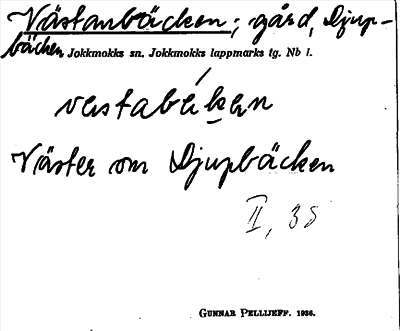 Västanbäcken; gård, Djup-
bäcken Jokkmokks sn. Jokkmokks lappmarks tg. Nb l.
vestabéken
Väster om Djupbäcken
II, 38
GUNNAR PELLIJEFF. 1936.